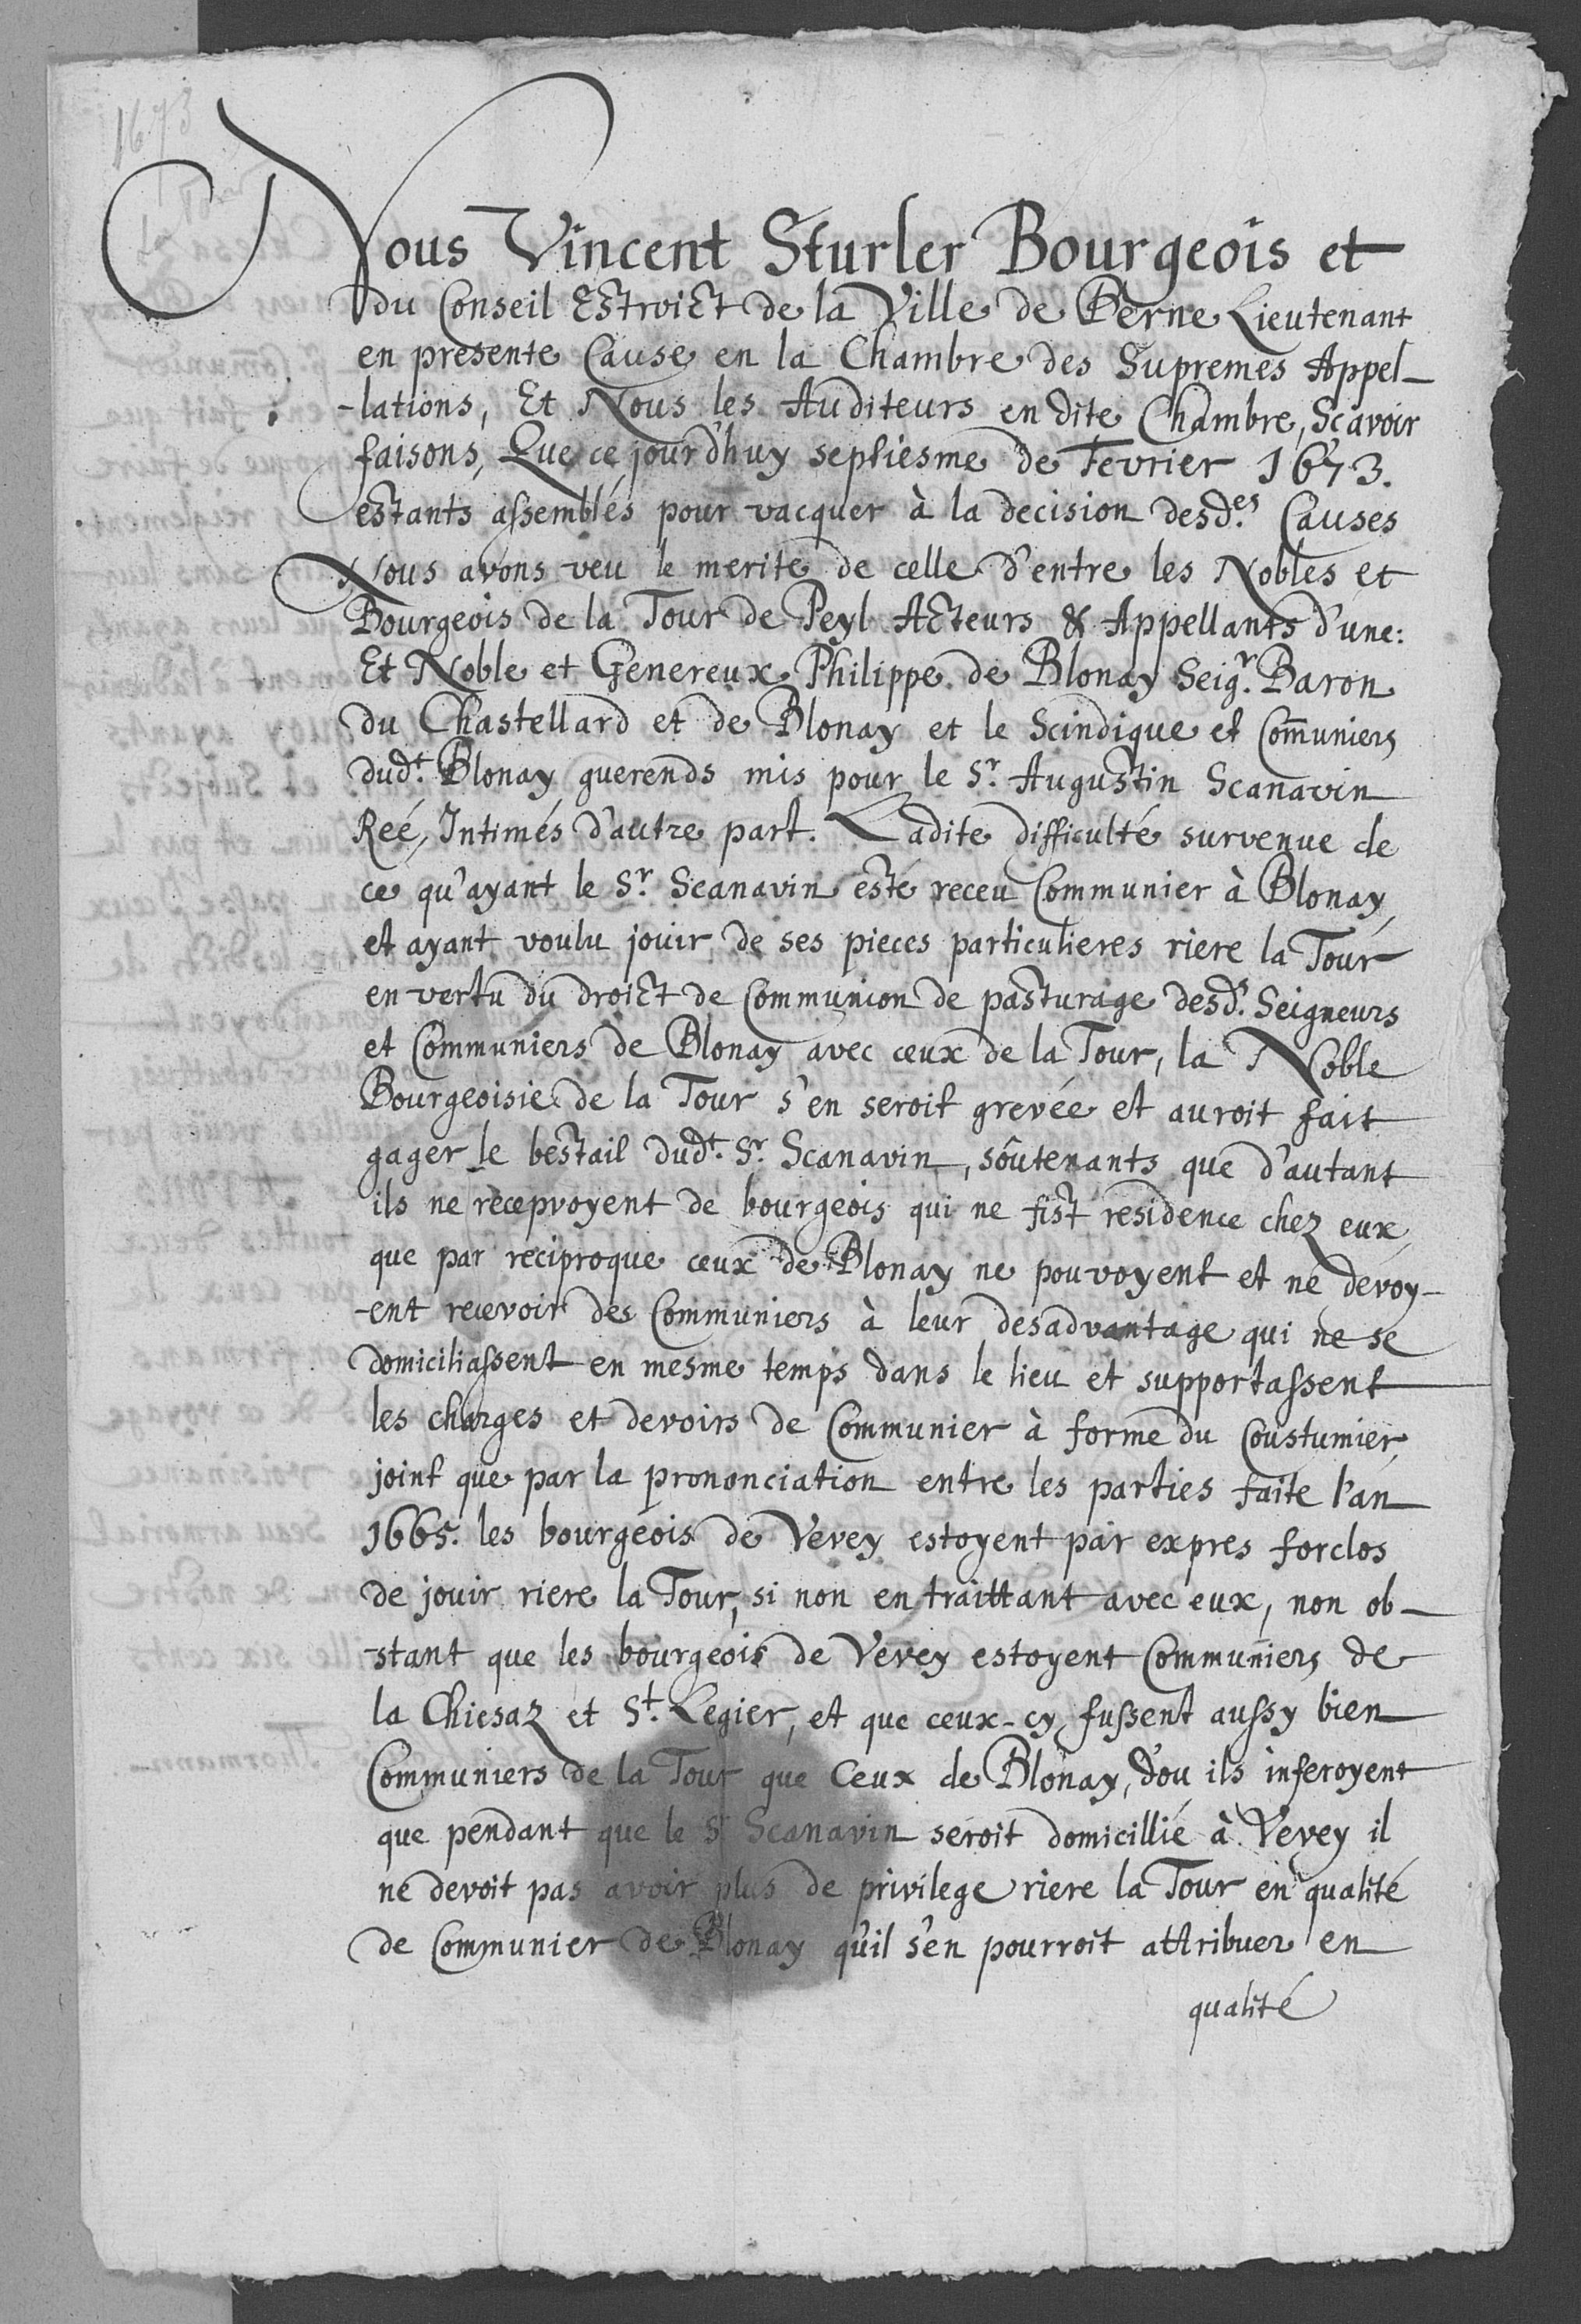 1673
Nous Vincent Sturler Bourgeois et
du Conseil Estroict de la Ville de Berne Lieutenant
en presente Cause en la Chambre des Supremes Appel-
-lations, Et Nous les Auditeurs en dite Chambre, Scavoir
faisons, Que ce jourd'huy septiesme de Fevrier 1673.
estants assemblés pour vacquer à la decision desd.es Causes
Nous avons veu le merite de celle d'entre les Nobles et
Bourgeois de la Tour de Peyl Acteurs & Appellants d'une:
Et Noble et Genereux Philippe de Blonay Seig.r Baron
du Chastellard et de Blonay et le Scindique et Com̄uniers
dud.t Blonay guerends mis pour le S.r Augustin Scanavin
Reé, Intimés d'autre part. Ladite difficulté survenue de
ce qu'ayant le S.r Scanavin esté receu Communier à Blonay,
et ayant voulu jouir de ses pieces particulieres riere la Tour
en vertu du droict de Communion de pasturage desd.s Seigneurs
et Communiers de Blonay avec ceux de la Tour, la Noble
Bourgeoisie de la Tour s'en seroit grevée et auroit fait
gager le bestail dud.t S.r Scanavin, soûtenants que d'autant
ils ne recepvoyent de bourgeois qui ne fist residence chez eux,
que par reciproque ceux de Blonay ne pouvoyent et ne devoy-
-ent recevoir des Communiers à leur desadvantage qui ne se
domiciliassent en mesme temps dans le lieu et supportassent
les charges et devoirs de Communier à forme du Coustumier,
joint que par la prononciation entre les parties faite l'an
1665. les bourgeois de Vevey estoyent par expres forclos
de jouir riere la Tour, si non en traittant avec eux, non ob-
-stant que les bourgeois de Vevey estoyent Communiers de
la Chiesaz et S.t Legier, et que ceux-cy fussent aussy bien
Communiers de la Tour que Ceux de Blonay, d'ou ils inferoyent
que pendant que le S.r Scanavin seroit domicillié à Vevey il
ne devoit pas avoir plus de privilege riere la Tour en qualité
de Communier de Blonay qu'il s'en pourroit attribuer en
qualité